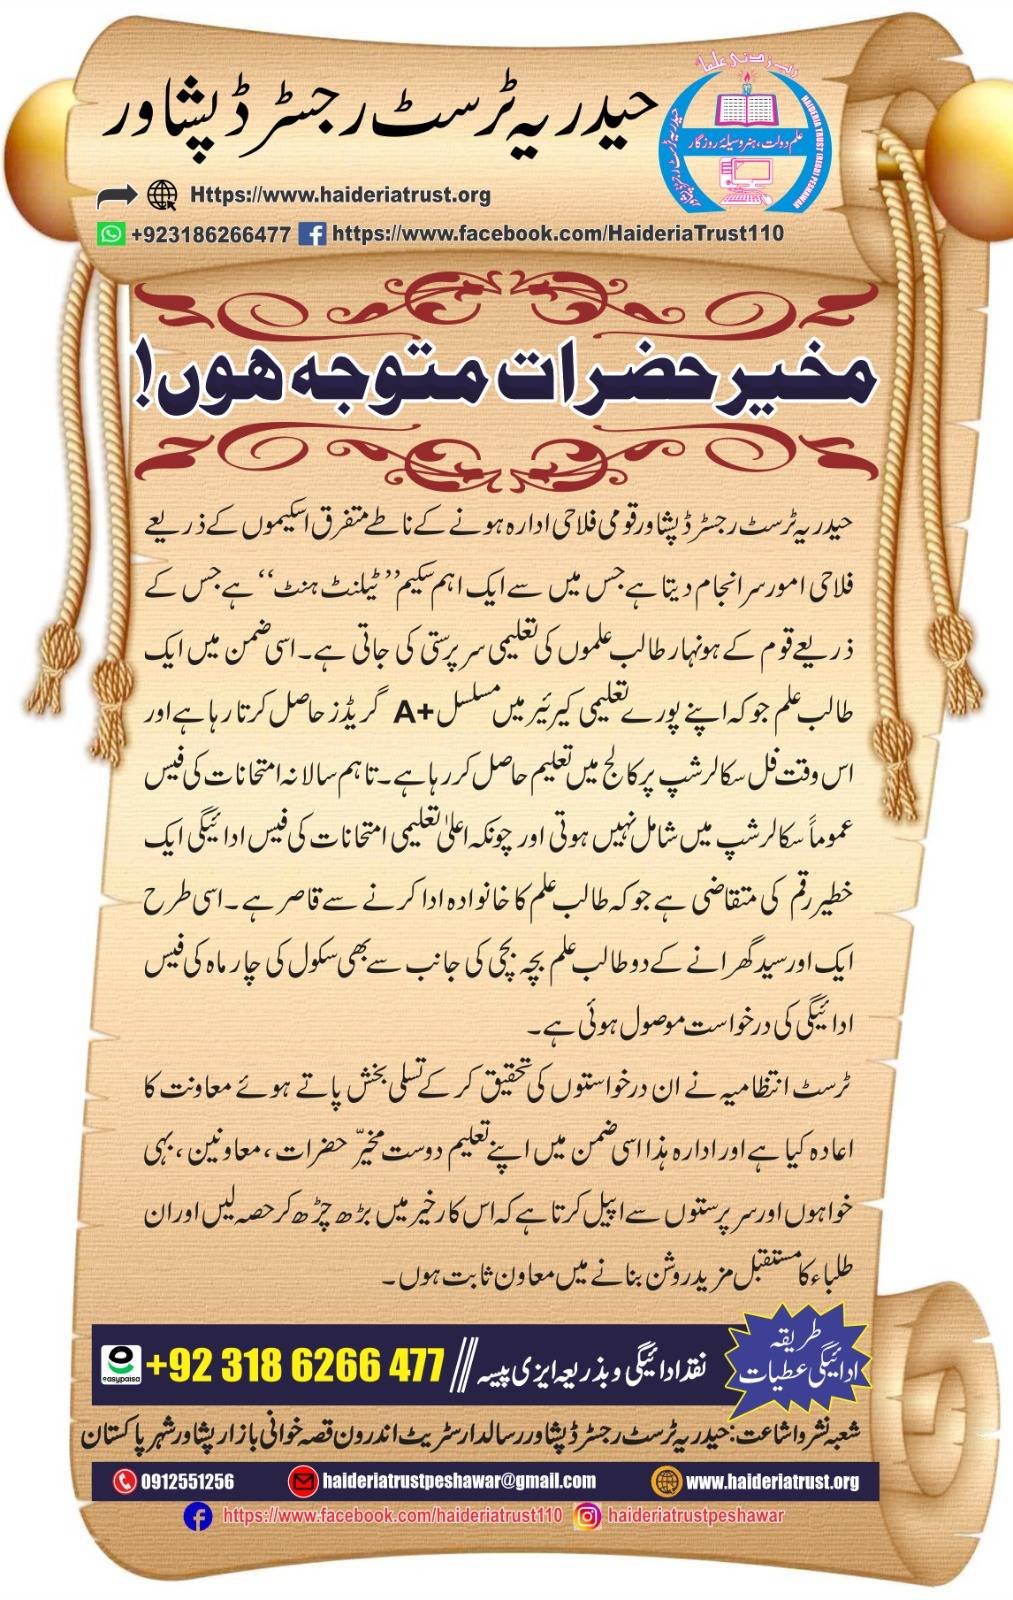 حیدریہ ٹرسٹ رجسٹرڈ پشاور
رب زدنی علما
علم دولت، ہنر وسیلۂ روزگار
حیدریہ ٹرسٹ رجسٹرڈ پشاور
HAIDERIA TRUST (REGD) PESHAWAR
Https://www.haideriatrust.org
+923186266477 https://www.facebook.com/HaideriaTrust110
مخیر حضرات متوجہ ہوں!
حیدریہ ٹرسٹ رجسٹرڈ پشاور قومی فلاحی ادارہ ہونے کے ناطے متفرق اسکیموں کے ذریعے
فلاحی امور سرانجام دیتا ہے جس میں سے ایک اہم سکیم ’’ٹیلنٹ ہنٹ‘‘ ہے جس کے
ذریعے قوم کے ہونہار طالب علموں کی تعلیمی سرپرستی کی جاتی ہے۔ اسی ضمن میں ایک
طالب علم جو کہ اپنے پورے تعلیمی کیرئیر میں مسلسل A+ گریڈز حاصل کرتا رہا ہے اور
اس وقت فل سکالرشپ پر کالج میں تعلیم حاصل کر رہا ہے۔ تاہم سالانہ امتحانات کی فیس
عموماً سکالرشپ میں شامل نہیں ہوتی اور چونکہ اعلیٰ تعلیمی امتحانات کی فیس ادائیگی ایک
خطیر رقم کی متقاضی ہے جو کہ طالب علم کا خانوادہ ادا کرنے سے قاصر ہے۔ اسی طرح
ایک اور سید گھرانے کے دو طالب علم بچہ بچی کی جانب سے بھی سکول کی چار ماہ کی فیس
ادائیگی کی درخواست موصول ہوئی ہے۔
ٹرسٹ انتظامیہ نے ان درخواستوں کی تحقیق کر کے تسلی بخش پاتے ہوئے معاونت کا
اعادہ کیا ہے اور ادارہ ہذا اسی ضمن میں اپنے تعلیم دوست مخیرّ حضرات، معاونین، بہی
خواہوں اور سرپرستوں سے اپیل کرتا ہے کہ اس کارخیر میں بڑھ چڑھ کر حصہ لیں اور ان
طلباء کا مستقبل مزید روشن بنانے میں معاون ثابت ہوں۔
طریقہ
ادائیگی عطیات
نقد ادائیگی و بذریعہ ایزی پیسہ /// +92 318 6266 477
easypaisa
شعبہ نشر و اشاعت: حیدریہ ٹرسٹ رجسٹرڈ پشاور رسالدار سٹریٹ اندرون قصہ خوانی بازار پشاور شہر پاکستان
0912551256 haideriatrustpeshawar@gmail.com www.haideriatrust.org
https://www.facebook.com/haideriatrust110 haideriatrustpeshawar